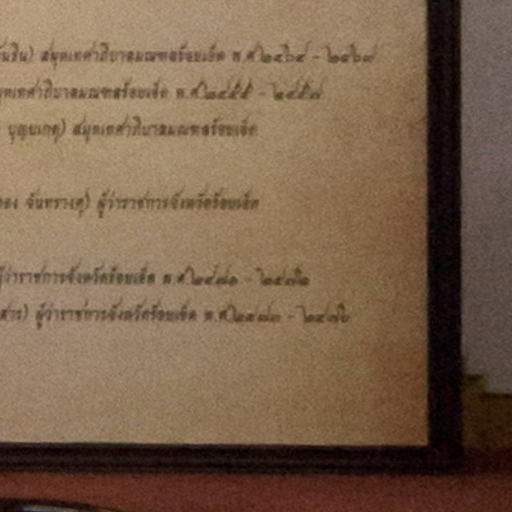 สมุหเทศาภิบาลมณฑลร้อยเอ็ด พ.ศ.
สมุหเทศาภิบาลมณฑลร้อยเอ็ด พ.ศ.๒๔๕๕ - ๒๔๕๗
บุญยเกตุ) สมุหเทศาภิบาลมณฑลร้อยเอ็ด
จันทรางศุ) ผู้ว่าราชการจังหวัดร้อยเอ็ด
ผู้ว่าราชการจังหวัดร้อยเอ็ด พ.ศ.๒๔๗๑ -
ผู้ว่าราชการจังหวัดร้อยเอ็ด พ.ศ.๒๔๗๓ -